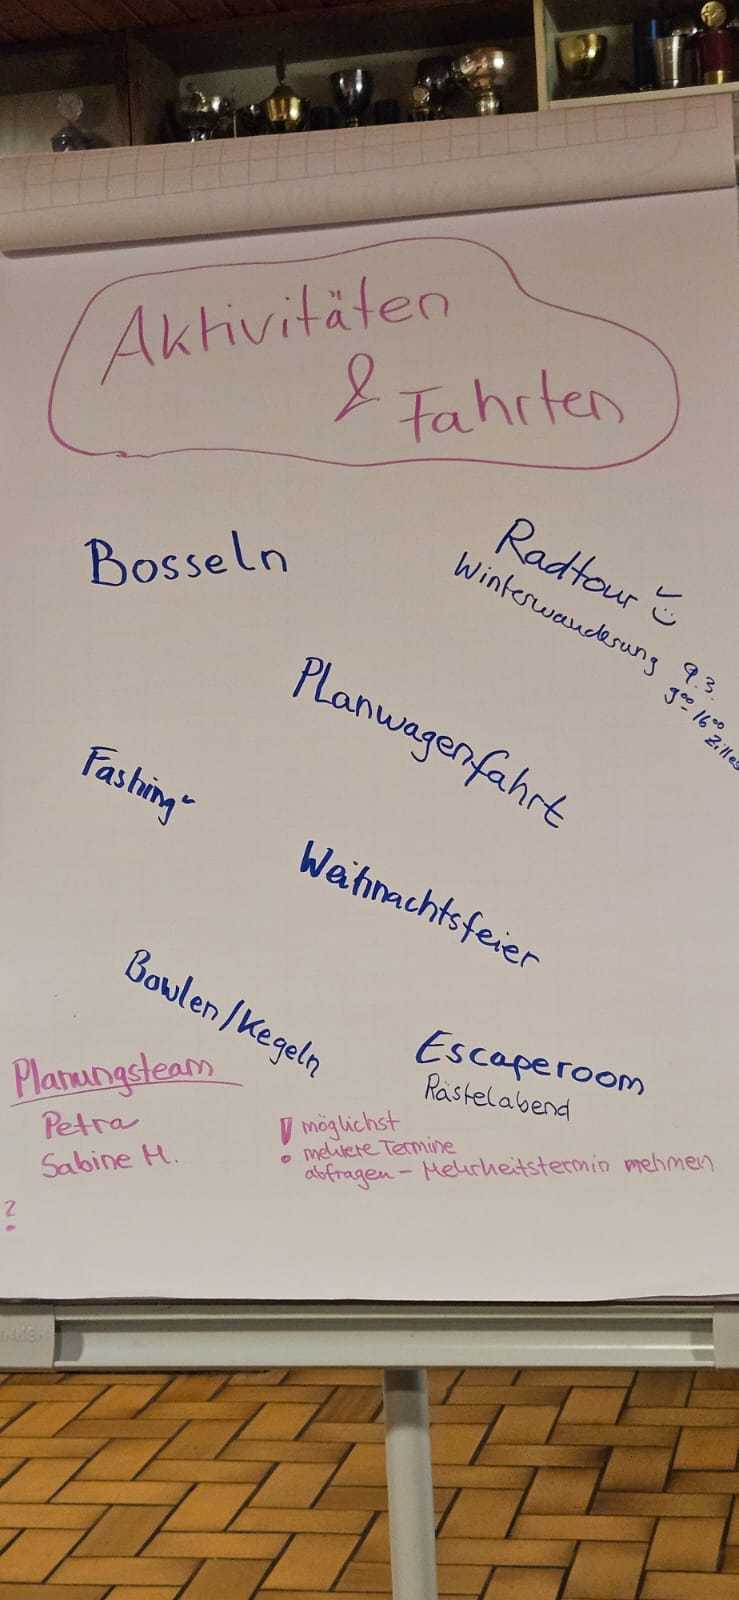 Aktivitäten
& Fahrten
Bosseln
Radtour
Winterwanderung 9.3.
9⁰⁰-16⁰⁰
Zilles
Planwagenfahrt
Fashing
Weihnachtsfeier
Bowlen/Kegeln
Escaperoom
Rästelabend
Planungsteam
Petra
Sabine M.
?
! möglichst
mehrere Termine
abfragen - Mehrheitstermin mehmen